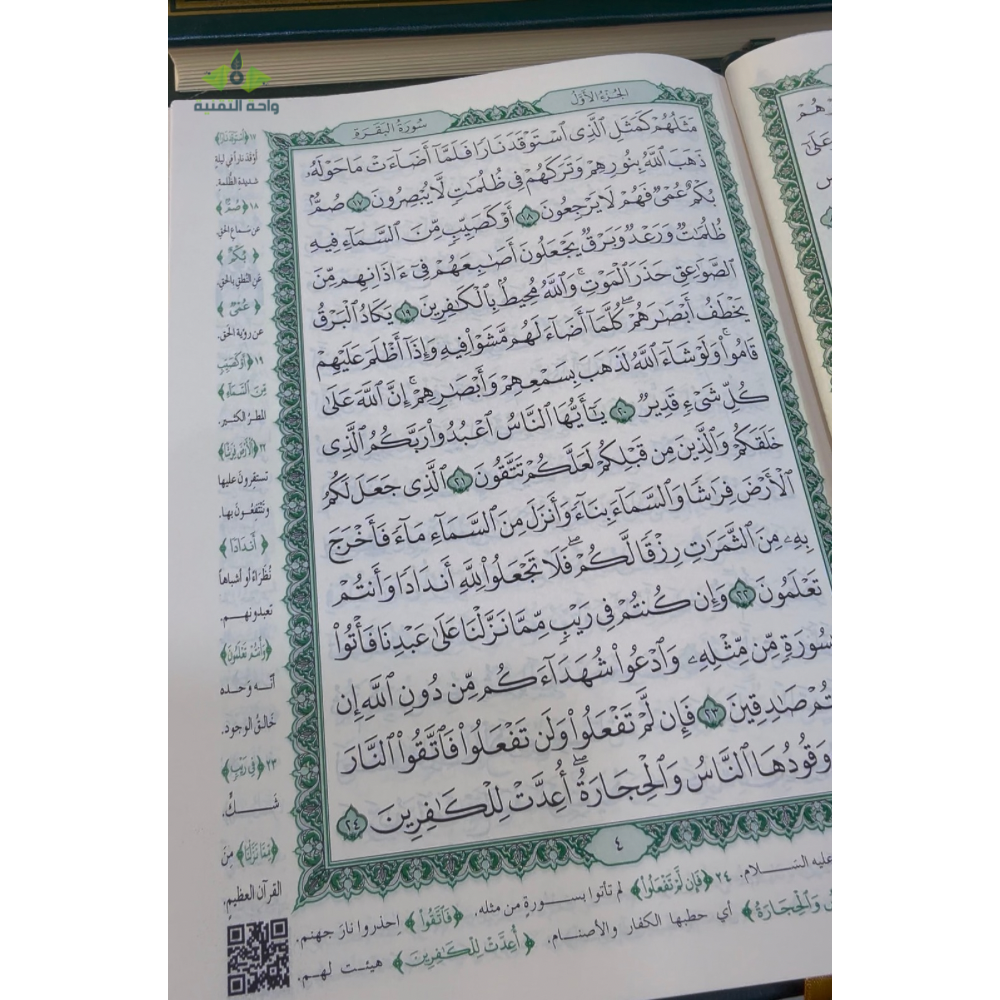 واحة التقنية
الجزء الأول
سورة البقرة
مَثَلُهُمْ كَمَثَلِ ٱلَّذِى ٱسْتَوْقَدَ نَارًا فَلَمَّآ أَضَآءَتْ مَا حَوْلَهُۥ
ذَهَبَ ٱللَّهُ بِنُورِهِمْ وَتَرَكَهُمْ فِى ظُلُمَٰتٍ لَّا يُبْصِرُونَ ١٧ صُمٌّۢ
بُكْمٌ عُمْىٌ فَهُمْ لَا يَرْجِعُونَ ١٨ أَوْ كَصَيِّبٍ مِّنَ ٱلسَّمَآءِ فِيهِ
ظُلُمَٰتٌ وَرَعْدٌ وَبَرْقٌ يَجْعَلُونَ أَصَٰبِعَهُمْ فِىٓ ءَاذَانِهِم مِّنَ
ٱلصَّوَٰعِقِ حَذَرَ ٱلْمَوْتِ ۚ وَٱللَّهُ مُحِيطٌۢ بِٱلْكَٰفِرِينَ ١٩ يَكَادُ ٱلْبَرْقُ
يَخْطَفُ أَبْصَٰرَهُمْ ۖ كُلَّمَآ أَضَآءَ لَهُم مَّشَوْا۟ فِيهِ وَإِذَآ أَظْلَمَ عَلَيْهِمْ
قَامُوا۟ ۚ وَلَوْ شَآءَ ٱللَّهُ لَذَهَبَ بِسَمْعِهِمْ وَأَبْصَٰرِهِمْ ۚ إِنَّ ٱللَّهَ عَلَىٰ
كُلِّ شَىْءٍ قَدِيرٌ ٢٠ يَٰٓأَيُّهَا ٱلنَّاسُ ٱعْبُدُوا۟ رَبَّكُمُ ٱلَّذِى
خَلَقَكُمْ وَٱلَّذِينَ مِن قَبْلِكُمْ لَعَلَّكُمْ تَتَّقُونَ ٢١ ٱلَّذِى جَعَلَ لَكُمُ
ٱلْأَرْضَ فِرَٰشًا وَٱلسَّمَآءَ بِنَآءً وَأَنزَلَ مِنَ ٱلسَّمَآءِ مَآءً فَأَخْرَجَ
بِهِۦ مِنَ ٱلثَّمَرَٰتِ رِزْقًا لَّكُمْ ۖ فَلَا تَجْعَلُوا۟ لِلَّهِ أَندَادًا وَأَنتُمْ
تَعْلَمُونَ ٢٢ وَإِن كُنتُمْ فِى رَيْبٍ مِّمَّا نَزَّلْنَا عَلَىٰ عَبْدِنَا فَأْتُوا۟
بِسُورَةٍ مِّن مِّثْلِهِۦ وَٱدْعُوا۟ شُهَدَآءَكُم مِّن دُونِ ٱللَّهِ إِن
كُنتُمْ صَٰدِقِينَ ٢٣ فَإِن لَّمْ تَفْعَلُوا۟ وَلَن تَفْعَلُوا۟ فَٱتَّقُوا۟ ٱلنَّارَ
وَقُودُهَا ٱلنَّاسُ وَٱلْحِجَارَةُ ۖ أُعِدَّتْ لِلْكَٰفِرِينَ ٢٤
٤
١٧ ﴿ٱسْتَوْقَدَ نَارًا﴾
أوقد ناراً في ليلةٍ
شديدةِ الظُّلمة.
١٨ ﴿صُمٌّ﴾
عن سَماعِ الحق.
﴿بُكْمٌ﴾
عَن النُّطقِ بالحق.
﴿عُمْىٌ﴾
عن رؤية الحق.
١٩ ﴿أَوْ كَصَيِّبٍ
مِّنَ ٱلسَّمَآءِ﴾
المطرُ الكثير.
٢٢ ﴿ٱلْأَرْضَ فِرَٰشًا﴾
تستقرون عليها
وتنتفعُون بها.
﴿أَندَادًا﴾
نُظَراءَ أو أشباهاً
تعبدونهم.
﴿وَأَنتُمْ تَعْلَمُونَ﴾
أنه وَحده
خَالقُ الوجود.
٢٣ ﴿فِى رَيْبٍ﴾
شَكٍّ.
﴿مِّمَّا نَزَّلْنَا﴾ مِنَ
القرآن العظيم.
عليه السَّلام. ٢٤ ﴿فَإِن لَّمْ تَفْعَلُوا۟﴾ لم تأتوا بسورةٍ من مثله. ﴿فَٱتَّقُوا۟﴾ احذروا نارَ جهنم.
وَٱلْحِجَارَةُ﴾ أي حطبها الكفار والأصنام. ﴿أُعِدَّتْ لِلْكَٰفِرِينَ﴾ هيئت لهم.